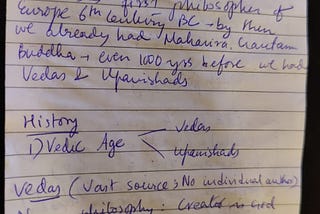 first philosopher of
Europe 6th Century BC - by then
we already had Mahavira, Gautam
Buddha - even 1000 yrs before we had
Vedas & Upanishads
History
1) Vedic Age
Vedas
Upanishads
Vedas (Vast source; No individual author)
philosophy: Created no god